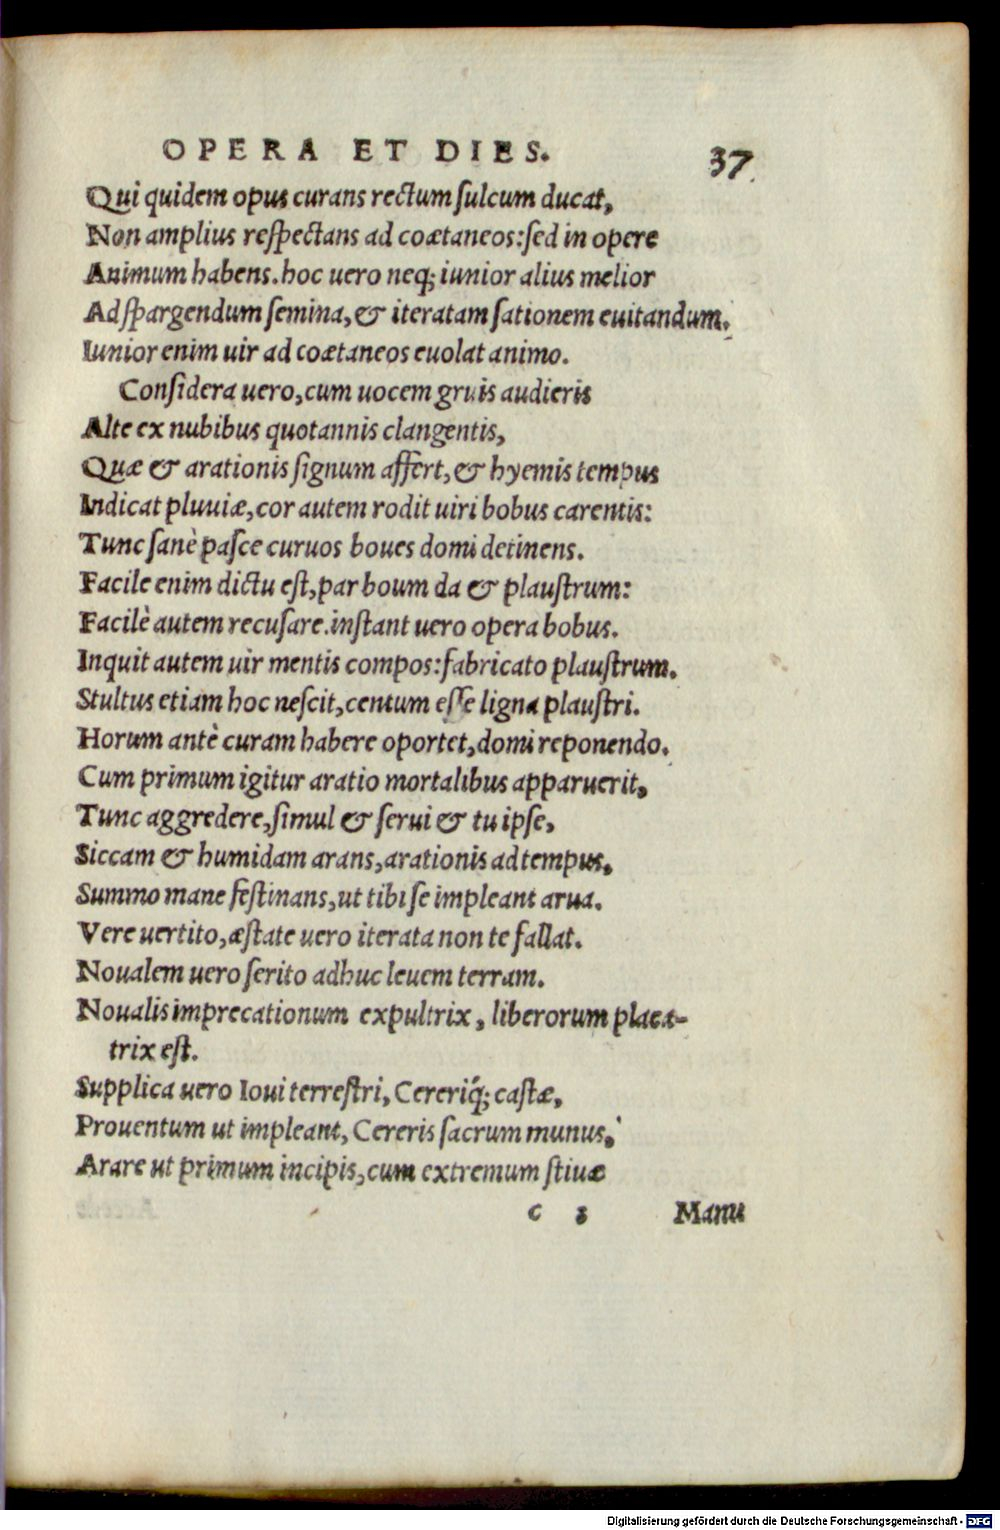 OPERA ET DIES. 37
Qui quidem opus curans rectum ſulcum ducat,
Non amplius reſpectans ad coætaneos: ſed in opere
Animum habens. hoc uero neq; iunior alius melior
Ad ſpargendum ſemina, & iteratam ſationem euitandum.
Iunior enim uir ad coætaneos euolat animo.
Conſidera uero, cum uocem gruis audieris
Alte ex nubibus quotannis clangentis,
Quæ & arationis ſignum affert, & hyemis tempus
Indicat pluuiæ, cor autem rodit uiri bobus carentis:
Tunc ſanè paſce curuos boues domi detinens.
Facile enim dictu eſt, par boum da & plauſtrum:
Facilè autem recuſare. inſtant uero opera bobus.
Inquit autem uir mentis compos: fabricato plauſtrum.
Stultus etiam hoc neſcit, centum eſſe ligna plauſtri.
Horum antè curam habere oportet, domi reponendo.
Cum primum igitur aratio mortalibus apparuerit,
Tunc aggredere, ſimul & ſerui & tu ipſe,
Siccam & humidam arans, arationis ad tempus,
Summo mane feſtinans, ut tibi ſe impleant arua.
Vere uertito, æſtate uero iterata non te fallat.
Noualem uero ſerito adhuc leuem terram.
Noualis imprecationum expultrix, liberorum placa-
trix eſt.
Supplica uero Ioui terreſtri, Cereriq́; caſtæ,
Prouentum ut impleant, Cereris ſacrum munus.
Arare ut primum incipis, cum extremum ſtiuæ
c 3 Manu
Digitalisierung gefördert durch die Deutsche Forschungsgemeinschaft - DFG